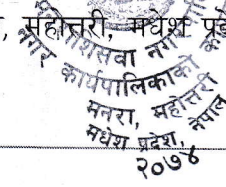 , महोत्तरी, मधेश प्रदे
नगर कार्यपालिकाको
मनरा, महोत्तरी
मधेश प्रदेश, नेपाल
२०७४